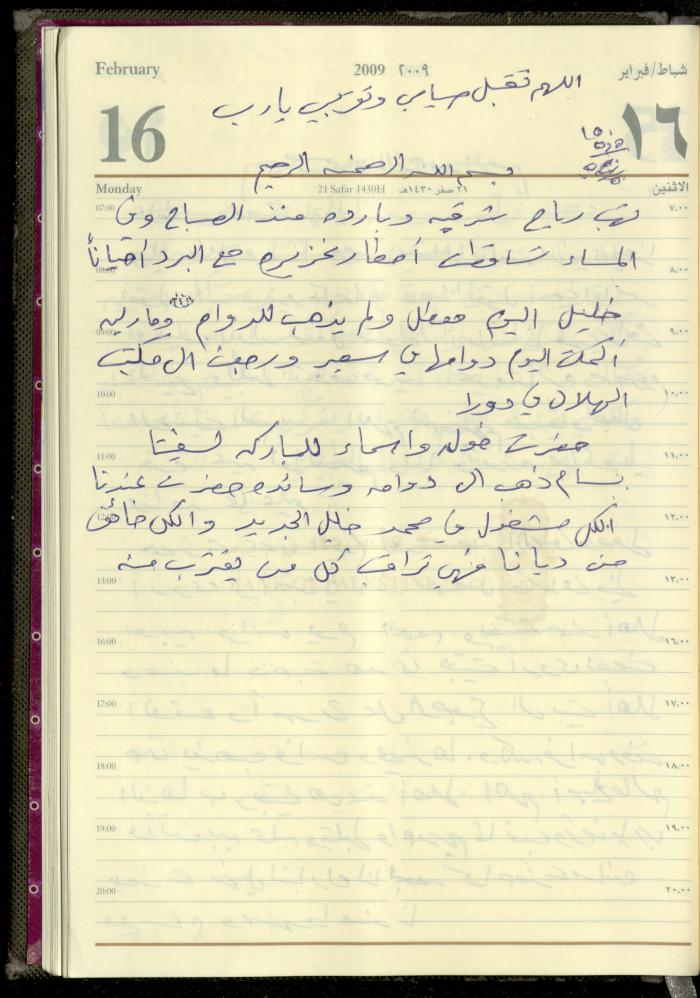 February 2009 ٢٠٠٩ شباط/فبراير
اللهم تقبل صيامي وتوبتي يا رب
16 ١٦
بسم الله الرحمن الرحيم
Monday 21 Safar 1430H ٢١ صفر ١٤٣٠هـ الاثنين
07:00 تهب رياح شرقيه وبارده منذ الصباح وفي ٧,٠٠
08:00 المساء تساقطت أمطار غزيره مع البرد أحياناً ٨,٠٠
خليل اليوم معطل ولم يذهب للدوام وماريه
09:00 ٩,٠٠
أكملت اليوم دوامها في سعير ورجعت الى مكتب
10:00 الهلال في دورا ١٠,٠٠
11:00 حضرت خوله واسماء للمباركه لسفيتا ١١,٠٠
بسام ذهب الى دوامه وسائده حضرت عندنا
12:00 الكل مشغول في محمد خليل الجديد والكل خائف ١٢,٠٠
13:00 من ديانا فهي تراقب كل من يقترب منه ١٣,٠٠
16:00 ١٦,٠٠
17:00 ١٧,٠٠
18:00 ١٨,٠٠
19:00 ١٩,٠٠
20:00 ٢٠,٠٠